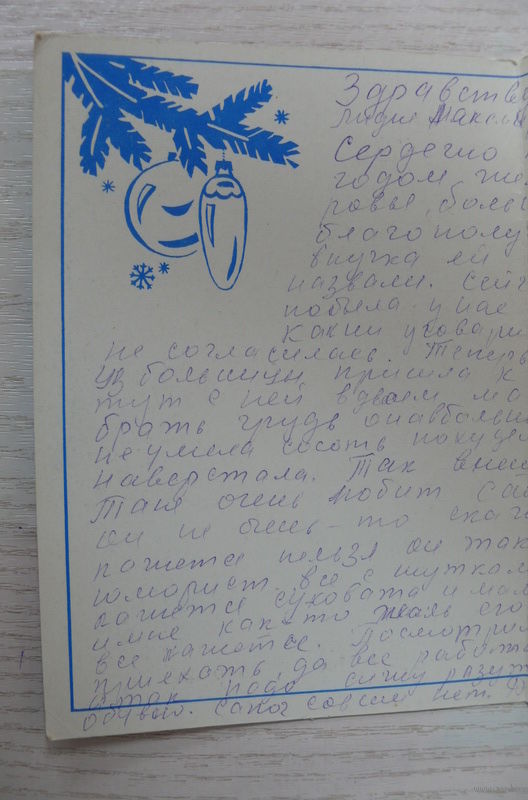 Здравству
Лидия Максим
Сердечно
годом, же
ровья, больш
благополу
внучка ей
назвали. Сейч
побыла у нас
какии уговари
не согласилась. Теперь
из больницы пришла к
тут с ней вдвоем мо
брать грудь она в больни
не умела сосать
наверстала. Так
Таня очень любит Са
он не очень-то ска
кажется нельзя он так
юморист все с шуткам
кажется суховата и мам
и мне как-то жаль его
все кажется. Посмотри
приехать да все работа
а так надо сижу разут
обувью. Сапог совсем нет.